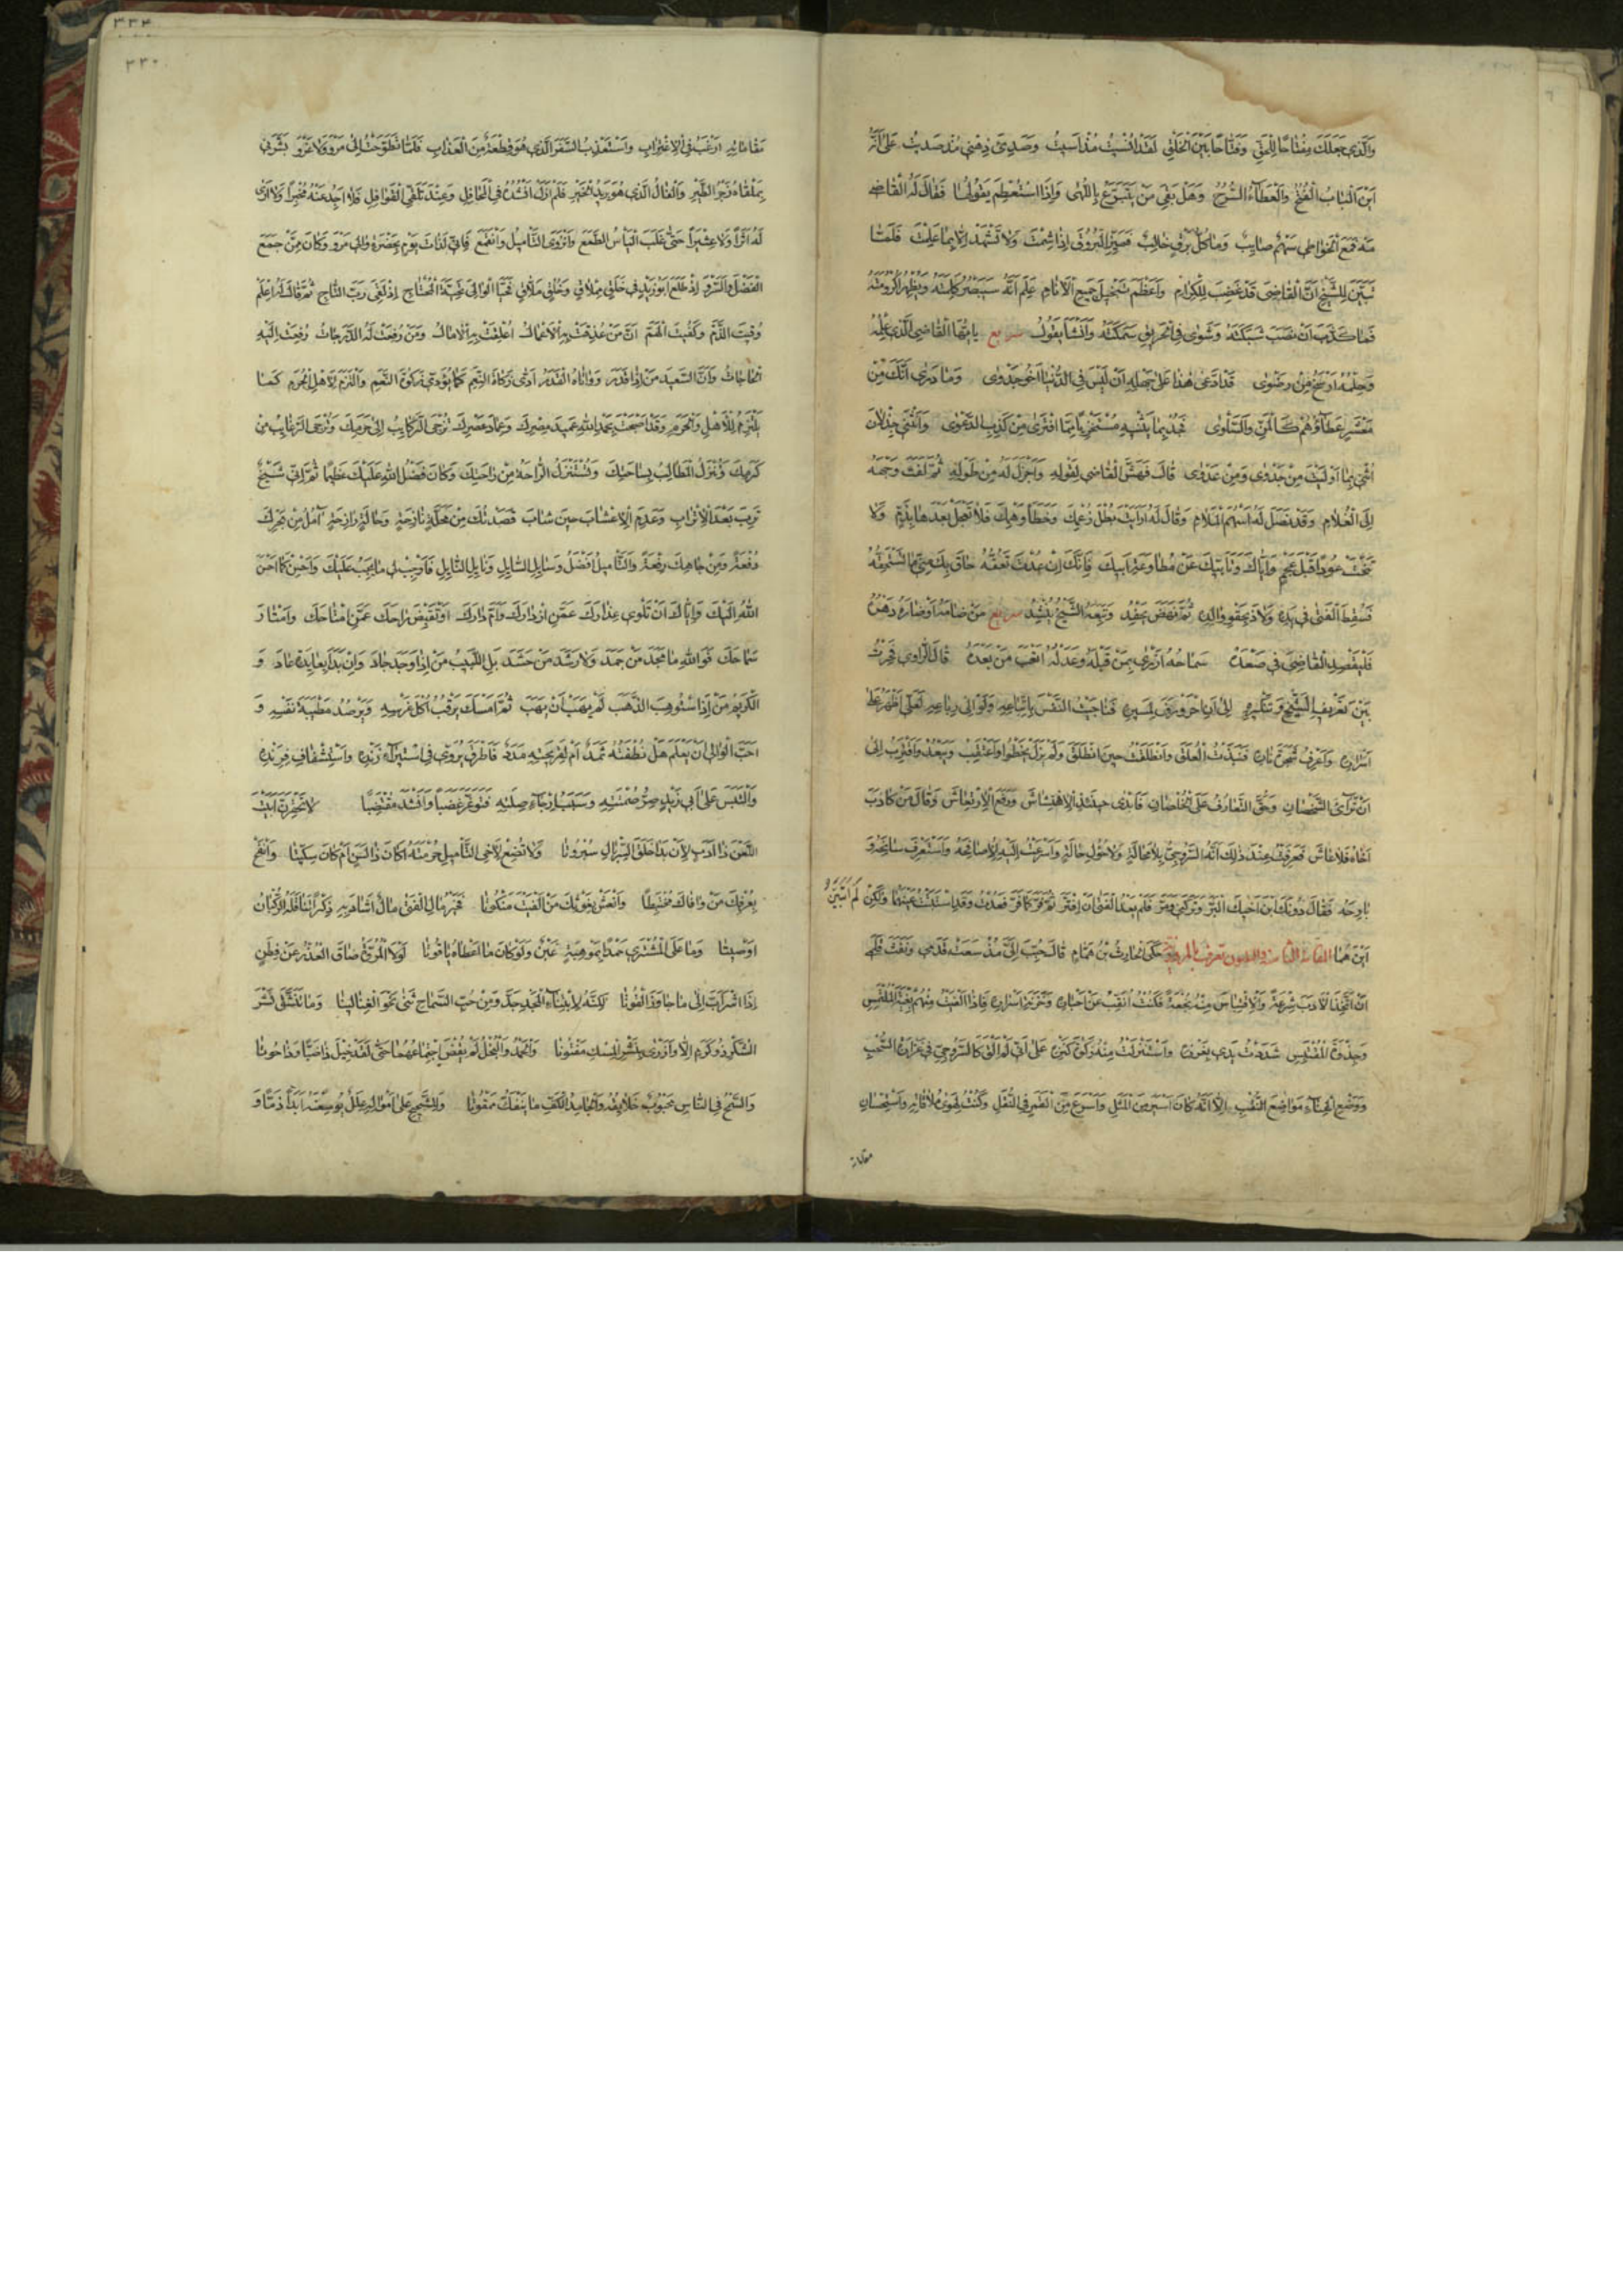 وَالَّذِي جَعَلَكَ مِفْتَاحًا لِلْحَقِّ وَفَتَّاحًا بَيْنَ الْخَلْقِ لَقَدْ اُنْسِيتُ مُذْ اَسِيتُ وَصَدِئَ ذِهْنِي مُذْ صَدِيتُ عَلَى اَنَّهُ
اَيْنَ الْبَابُ الْفُتُحُ وَالْعَطَاءُ السُّرُحُ وَهَلْ بَقِيَ مَنْ يَتَبَرَّعُ بِاللُّهٰى وَاِذَا اسْتُطْعِمَ يَقُولُ هَا فَقَالَ لَهُ الْقَاضِي
مَهْ فَمَعَ الْخَوَاطِي سَهْمٌ صَايِبٌ وَمَا كُلُّ بَرْقٍ خَالِبٌ فَمَيِّزِ الْبُرُوقَ اِذَا شِمْتَ وَلَا تَشْهَدْ اِلَّا بِمَا عَلِمْتَ فَلَمَّا
تَبَيَّنَ لِلشَّيْخِ اَنَّ الْقَاضِيَ قَدْ غَضِبَ لِلْكِرَامِ وَاَعْظَمَ تَبْخِيلَ جَمِيعِ الْاَنَامِ عَلِمَ اَنَّهُ سَيَنْصُرُ كَلِمَتَهُ وَيُظْهِرُ اُكْرُومَتَهُ
فَمَا كَذَّبَ اَنْ نَصَبَ شَبَكَتَهُ وَشَوٰى فِي الْحَرِيقِ سَمَكَتَهُ وَاَنْشَأَ يَقُولُ سريع يَا اَيُّهَا الْقَاضِي الَّذِي عِلْمُهُ
وَحِلْمُهُ اَرْسَخُ مِنْ رَضْوٰى قَدِ ادَّعٰى هٰذَا عَلٰى جَهْلِهِ اَنْ لَيْسَ فِي الدُّنْيَا اَخُو جَدْوٰى وَمَا دَرٰى اَنَّكَ مِنْ
مَعْشَرٍ عَطَاؤُهُمْ كَالْمَنِّ وَالسَّلْوٰى فَجُدْ بِمَا يَثْنِيهِ مُسْتَخْزِيًا مِمَّا افْتَرٰى مِنْ كَذِبِ الدَّعْوٰى وَاَنْثَنِي جَذْلَانَ
اُثْنِي بِمَا اَوْلَيْتَ مِنْ جَدْوٰى وَمِنْ عَدْوٰى قَالَ فَهَشَّ الْقَاضِي لِقَوْلِهِ وَاَجْزَلَ لَهُ مِنْ طَوْلِهِ ثُمَّ لَفَتَ وَجْهَهُ
اِلَى الْغُلَامِ وَقَدْ نَصَلَ لَهُ اَسْهُمَ الْمَلَامِ وَقَالَ لَهُ اَرَاَيْتَ بُطْلَ زَعْمِكَ وَخَطَأَ وَهْمِكَ فَلَا تَعْجَلْ بَعْدَهَا بِذَمٍّ وَلَا
تَنْحِتْ عُودًا قَبْلَ عَجْمٍ وَاِيَّاكَ وَتَأَبِّيَكَ عَنْ مُطَاوَعَةِ اَبِيكَ فَاِنَّكَ اِنْ عُدْتَ تَعُقُّهُ حَاقَ بِكَ مِنِّي مَا تَسْتَحِقُّهُ
فَسُقِطَ الْفَتٰى فِي يَدِهِ وَلَاذَ بِحَقْوِ وَالِدِهِ ثُمَّ نَهَضَ يَحْفِدُ وَتَبِعَهُ الشَّيْخُ يُنْشِدُ سريع مَنْ ضَامَهُ اَوْ ضَارَهُ دَهْرُهُ
فَلْيَقْصِدِ الْقَاضِيَ فِي صَعْدَهْ سَمَاحُهُ اَزْرٰى بِمَنْ قَبْلَهُ وَعَدْلُهُ اَتْعَبَ مَنْ بَعْدَهُ قَالَ الرَّاوِي فَحِرْتُ
بَيْنَ تَعْرِيفِ الشَّيْخِ وَتَنْكِيرِهِ اِلٰى اَنِ احْرَوْرَفَ لِمَسِيرِهِ فَنَاجَيْتُ النَّفْسَ بِاتِّبَاعِهِ وَلَوْ اِلٰى رِبَاعِهِ لَعَلِّي اَظْهَرُ عَلٰى
اَسْرَارِهِ وَاَعْرِفُ شَجَرَةَ نَارِهِ فَنَبَذْتُ الْعُلَقَ وَانْطَلَقْتُ حِينَ انْطَلَقَ وَلَمْ يَزَلْ يَخْطُو وَاَعْتَقِبُ وَيَبْعُدُ وَاَقْتَرِبُ اِلٰى
اَنْ تَرَاءَى الشَّخْصَانِ وَحَقَّ التَّعَارُفُ عَلَى الْخُلْصَانِ فَاَبْدٰى حِينَئِذٍ الْاِهْتِشَاشَ وَرَفَعَ الْاِرْتِعَاشَ وَقَالَ مَنْ كَاذَبَ
اَخَاهُ فَلَا عَاشَ فَعَرَفْتُ عِنْدَ ذٰلِكَ اَنَّهُ السَّرُوجِيُّ بِلَا مَحَالَةٍ وَلَا حُؤُولِ حَالَةٍ وَاَسْرَعْتُ اِلَيْهِ لِاُصَافِحَهُ وَاَسْتَعْرِفَ سَانِحَهُ وَ
بَارِحَهُ فَقَالَ دُونَكَ ابْنَ اَخِيكَ الْبَرَّ وَتَرَكَنِي وَمَرَّ فَلَمْ يَعْدُ الْفَتٰى اَنِ افْتَرَّ ثُمَّ فَرَّ كَمَا فَرَّ فَعُدْتُ وَقَدِ اسْتَبَنْتُ عَيْنَهُمَا وَلٰكِنْ لَمْ اَتَبَيَّنْ
اَيْنَ هُمَا المقامة الثامنة والثلثون تعرف بالمروية حَكَى الْحَارِثُ بْنُ هَمَّامٍ قَالَ حُبِّبَ اِلَيَّ مُذْ سَعَتْ قَدَمِي وَنَفَثَ قَلَمِي
اَنْ اَتَّخِذَ الْاَدَبَ شِرْعَةً وَالْاِقْتِبَاسَ مِنْهُ نُجْعَةً فَكُنْتُ اُنَقِّبُ عَنْ اَخْبَارِهِ وَخَزَنَةِ اَسْرَارِهِ فَاِذَا اَلْفَيْتُ مِنْهُمْ بُغْيَةَ الْمُلْتَمِسِ
وَجِذْوَةَ الْمُقْتَبِسِ شَدَدْتُ يَدِي بِغَرْزِهِ وَاسْتَنْزَلْتُ مِنْهُ زَكٰوةَ كَنْزِهِ عَلٰى اَنِّي لَمْ اَلْقَ كَالسَّرُوجِيِّ فِي غَزَارَةِ السُّحُبِ
وَوَضْعِ الْهِنَاءِ مَوَاضِعَ النُّقُبِ اِلَّا اَنَّهُ كَانَ اَسْيَرَ مِنَ الْمَثَلِ وَاَسْرَعَ مِنَ الْقَمَرِ فِي النُّقَلِ وَكُنْتُ لِهَوٰى مُلَاقَاتِهِ وَاسْتِحْسَانِ
مقاماته
٣٣٤
٣٣٠
مَقَامَاتِهِ اَرْغَبُ فِي الْاِغْتِرَابِ وَاَسْتَعْذِبُ السَّفَرَ الَّذِي هُوَ قِطْعَةٌ مِنَ الْعَذَابِ فَلَمَّا تَطَوَّحْتُ اِلٰى مَرْوَ وَلَا غَرْوَ بَشَّرَنِي
بِمَلْقَاهُ زَجْرُ الطَّيْرِ وَالْفَالُ الَّذِي هُوَ بَرِيدُ الْخَيْرِ فَلَمْ اَزَلْ اَنْشُدُهُ فِي الْمَحَافِلِ وَعِنْدَ تَلَقِّي الْقَوَافِلِ فَلَا اَجِدُ عَنْهُ مُخْبِرًا وَلَا اَرٰى
لَهُ اَثَرًا وَلَا عِثْيَرًا حَتّٰى غَلَبَ الْيَأْسُ الطَّمَعَ وَانْزَوَى التَّأْمِيلُ وَانْقَمَعَ فَاِنِّي لَذَاتَ يَوْمٍ بِحَضْرَةِ وَالِي مَرْوَ وَكَانَ مِمَّنْ جَمَعَ
الْفَضْلَ وَالسَّرْوَ اِذْ طَلَعَ اَبُو زَيْدٍ فِي خَلَقٍ مِمْلَاقٍ وَخُلُقٍ مَلَّاقٍ فَحَيَّا الْوَالِيَ تَحِيَّةَ الْمُحْتَاجِ اِذْ لَقِيَ رَبَّ التَّاجِ ثُمَّ قَالَ لَهُ اعْلَمْ
وُقِيتَ الذَّمَّ وَكُفِيتَ الْهَمَّ اَنَّ مَنْ عُذِقَتْ بِهِ الْاَعْمَالُ اُعْلِقَتْ بِهِ الْاٰمَالُ وَمَنْ رُفِعَتْ لَهُ الدَّرَجَاتُ رُفِعَتْ اِلَيْهِ
الْحَاجَاتُ وَاَنَّ السَّعِيدَ مَنْ اِذَا قَدَرَ وَوَاتَاهُ الْقَدَرُ اَدّٰى زَكَاةَ النِّعَمِ كَمَا يُؤَدِّي زَكٰوةَ النَّعَمِ وَالْتَزَمَ لِاَهْلِ الْحُرَمِ كَمَا
يَلْتَزِمُ لِلْاَهْلِ وَالْحَرَمِ وَقَدْ اَصْبَحْتَ بِحَمْدِ اللّٰهِ عَمِيدَ مِصْرِكَ وَعِمَادَ عَصْرِكَ تُزْجَى الرَّكَايِبُ اِلٰى حَرَمِكَ وَتُرْجَى الرَّغَايِبُ مِنْ
كَرَمِكَ وَتُنْزَلُ الْمَطَالِبُ بِسَاحَتِكَ وَتُسْتَنْزَلُ الرَّاحَةُ مِنْ رَاحَتِكَ وَكَانَ فَضْلُ اللّٰهِ عَلَيْكَ عَظِيمًا ثُمَّ اِنِّي شَيْخٌ
تَرِبَ بَعْدَ الْاِتْرَابِ وَعَدِمَ الْاِعْشَابَ حِينَ شَابَ قَصَدْتُكَ مِنْ مَحَلَّةٍ نَازِحَةٍ وَحَالَةٍ رَازِحَةٍ اٰمُلُ مِنْ بَحْرِكَ
دُفْعَةً وَمِنْ جَاهِكَ رِفْعَةً وَالتَّأْمِيلُ اَفْضَلُ وَسَايِلِ السَّايِلِ وَنَايِلِ النَّايِلِ فَاَوْجِبْ لِي مَا يَجِبُ عَلَيْكَ وَاَحْسِنْ كَمَا اَحْسَنَ
اللّٰهُ اِلَيْكَ وَاِيَّاكَ اَنْ تَلْوِيَ عِذَارَكَ عَمَّنِ ازْدَارَكَ وَاَمَّ دَارَكَ اَوْ تَقْبِضَ رَاحَكَ عَمَّنِ امْتَاحَكَ وَامْتَارَ
سَمَاحَكَ فَوَاللّٰهِ مَا مَجَدَ مَنْ جَمَدَ وَلَا رَشَدَ مَنْ حَشَدَ بَلِ اللَّبِيبُ مَنْ اِذَا وَجَدَ جَادَ وَاِنْ بَدَأَ بِعَايِدَةٍ عَادَ وَ
الْكَرِيمُ مَنْ اِذَا اسْتُوهِبَ الذَّهَبَ لَمْ يَهَبْ اَنْ يَهَبَ ثُمَّ اَمْسَكَ يَرْقُبُ اُكُلَ غَرْسِهِ وَيَرْصُدُ مَطْيَبَةَ نَفْسِهِ وَ
اَحَبَّ الْوَالِي اَنْ يَعْلَمَ هَلْ نُطْفَتُهُ ثَمَدٌ اَمْ لِقَرِيحَتِهِ مَدَدٌ فَاَطْرَقَ يُرَوِّي فِي اسْتِيرَاءِ زَنْدِهِ وَاسْتِشْفَافِ فِرِنْدِهِ
وَالْتَبَسَ عَلٰى اَبِي زَيْدٍ سِرُّ صُمْتَتِهِ وَسَبَبُ اِرْجَاءِ صِلَتِهِ فَتَوَغَّرَ غَضَبًا وَاَنْشَدَ مُقْتَضِبًا لَا تَحْقِرَنَّ اَبَيْتَ
اللَّعْنَ ذَا اَدَبٍ لِاَنْ بَدَا خَلَقَ السِّرْبَالِ سُبْرُوتَا وَلَا تُضِعْ لِاَخِي التَّأْمِيلِ حُرْمَتَهُ اَكَانَ ذَا لَسَنٍ اَمْ كَانَ سِكِّيتَا وَانْفَحْ
بِعُرْفِكَ مَنْ وَافَاكَ مُخْتَبِطًا وَانْعَشْ بِغَوْثِكَ مَنْ اَلْفَيْتَ مَنْكُوتَا فَخَيْرُ مَالِ الْفَتٰى مَالٌ اَشَادَ بِهِ ذِكْرًا تَنَاقَلَهُ الرُّكْبَانُ
اَوْ صِيتَا وَمَا عَلَى الْمُشْتَرِي حَمْدًا بِمَوْهِبَةٍ غَبْنٌ وَلَوْ كَانَ مَا اَعْطَاهُ يَاقُوتَا لَوْلَا الْمُرُوَّةُ ضَاقَ الْعُذْرُ عَنْ فَطِنٍ
اِذَا اشْرَاَبَّ اِلٰى مَا جَاوَزَ الْقُوتَا لٰكِنَّهُ لِابْتِنَاءِ الْمَجْدِ جَدَّ وَمِنْ حُبِّ السَّمَاحِ ثَنٰى نَحْوَ الْغِنٰى لِيتَا وَمَا تَنَشَّقَ نَشْرَ
الشُّكْرِ ذُو كَرَمٍ اِلَّا وَاَزْرٰى بِنَشْرِ الْمِسْكِ مَفْتُوتَا وَالْحَمْدُ وَالْبُخْلُ لَمْ يُقْضَ اجْتِمَاعُهُمَا حَتّٰى لَقَدْ خِيلَ ذَا ضَبًّا وَذَا حُوتَا
وَالسَّمْحُ فِي النَّاسِ مَحْبُوبٌ خَلَايِقُهُ وَالْجَامِدُ الْكَفِّ مَا يَنْفَكُّ مَمْقُوتَا وَلِلشَّحِيحِ عَلٰى اَمْوَالِهِ عِلَلٌ يُوسِعْنَهُ اَبَدًا ذَمًّا وَ